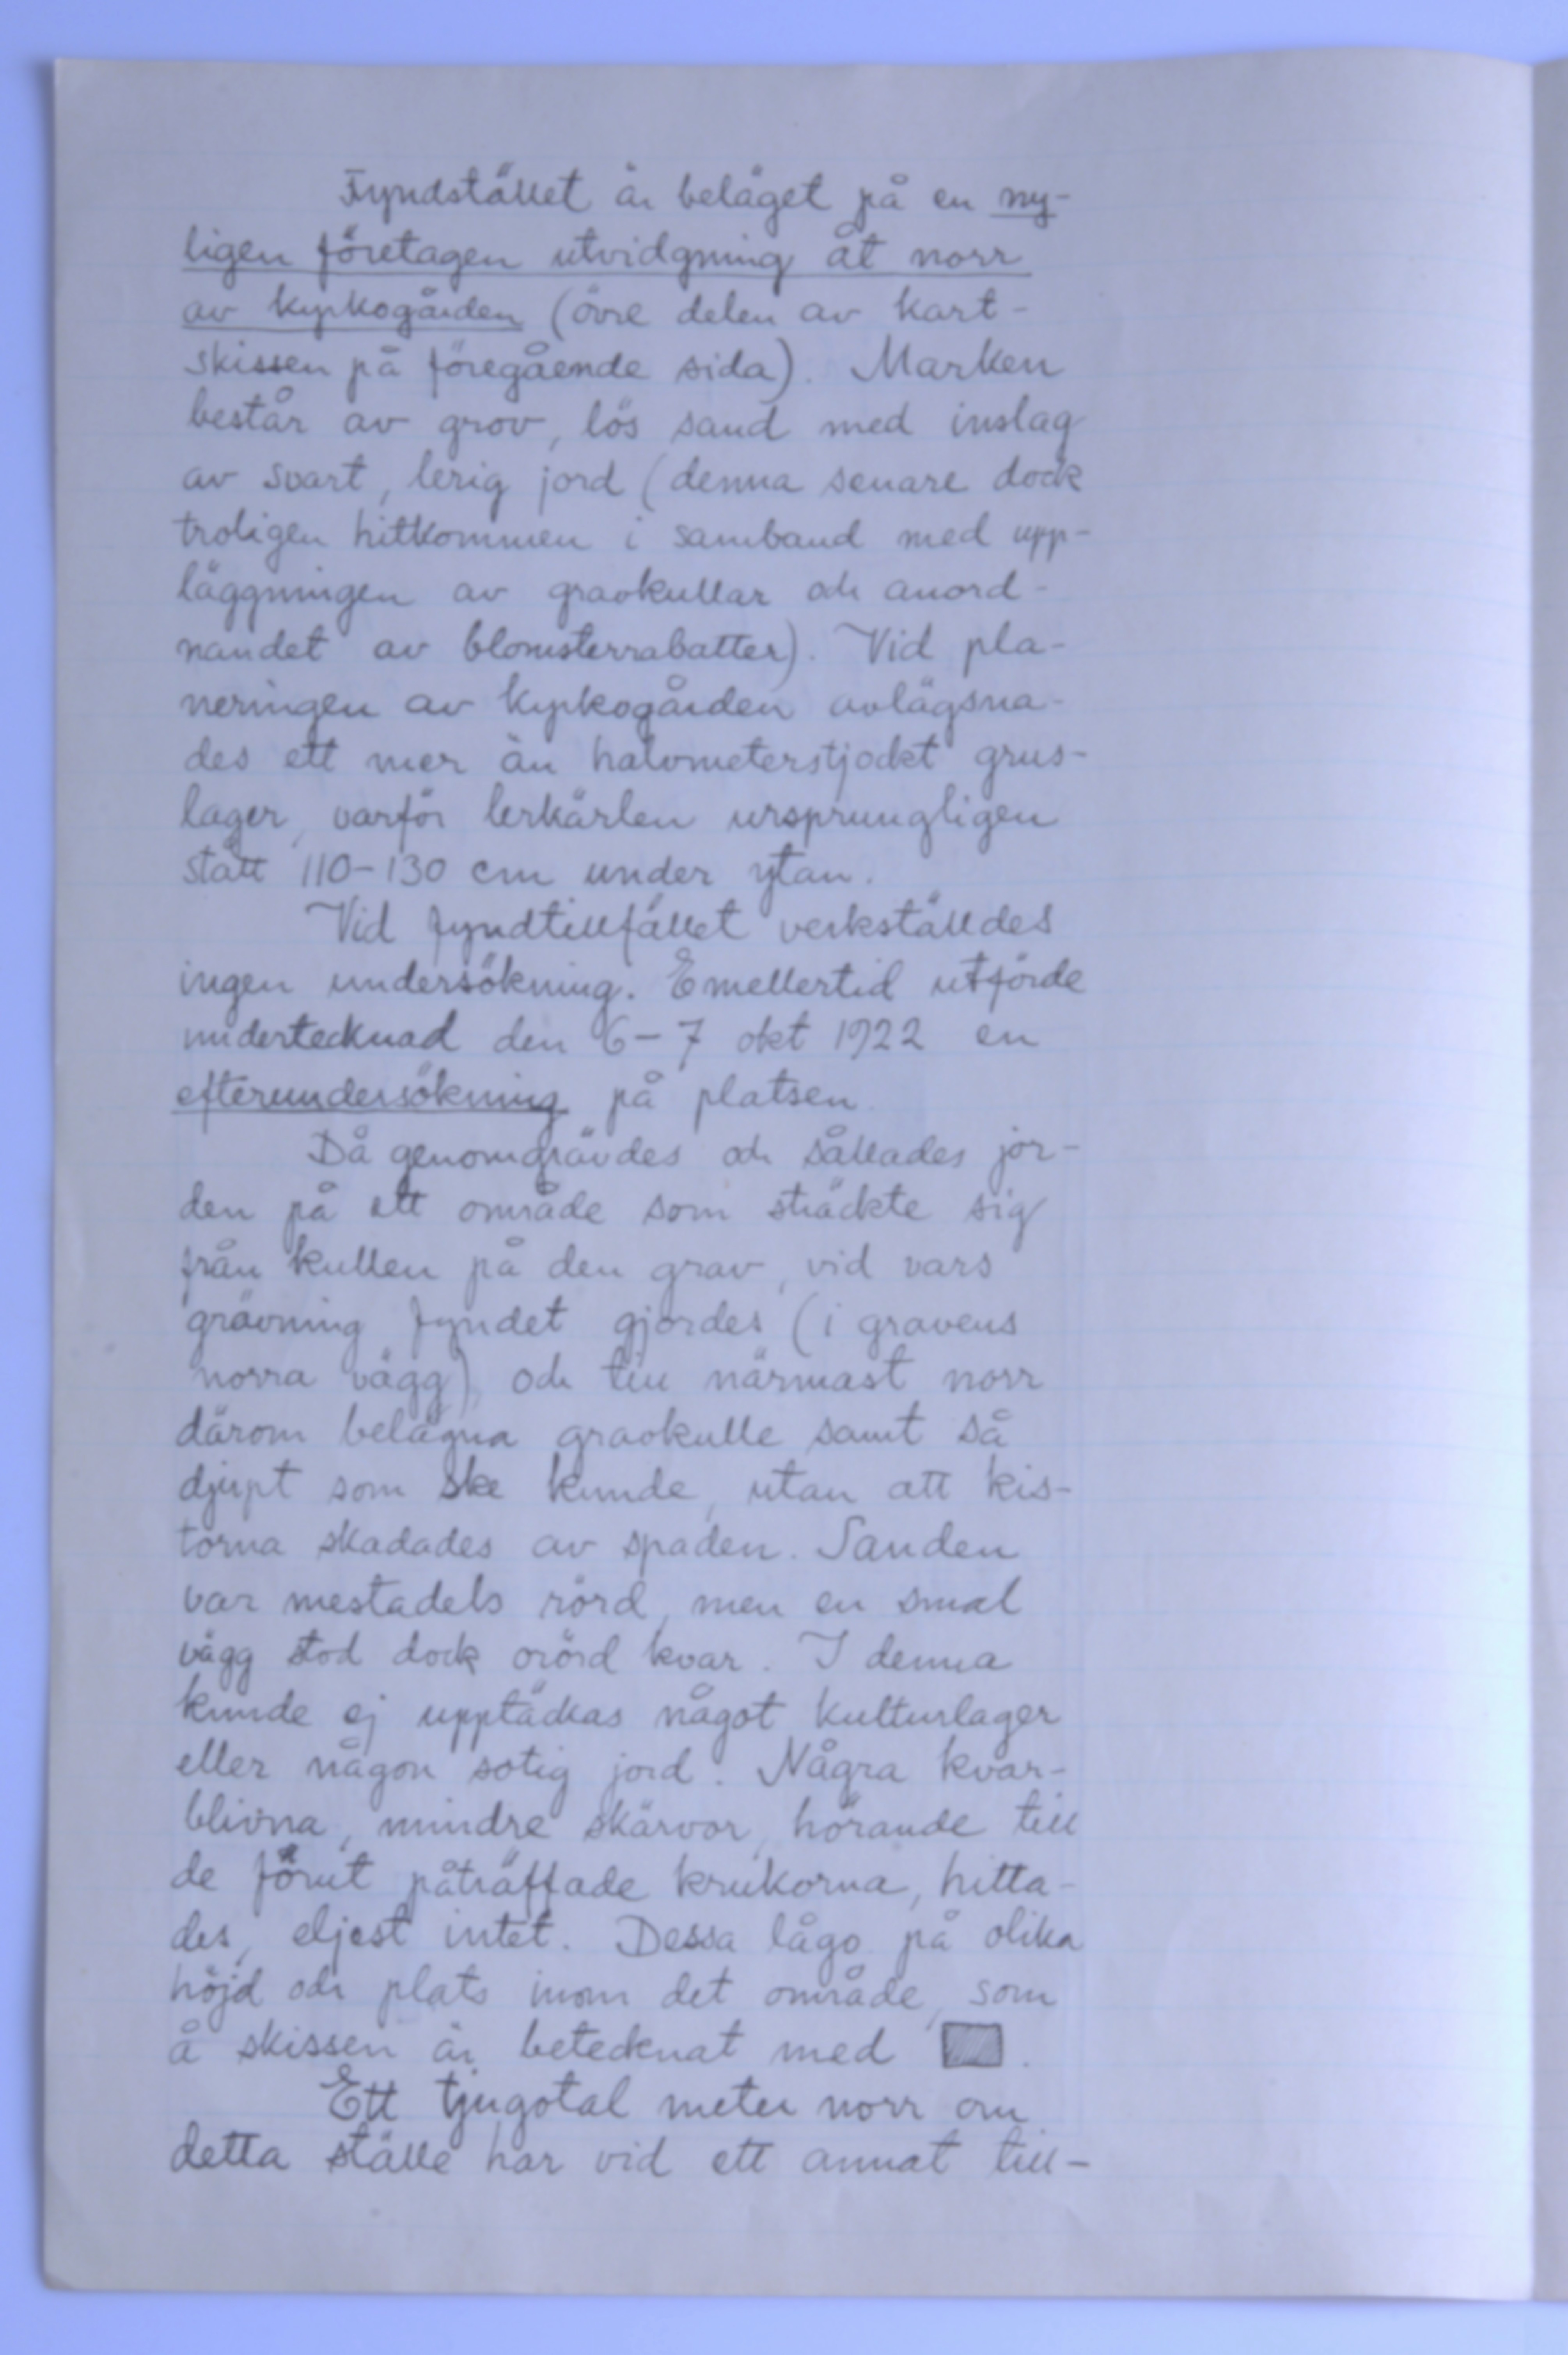 Fyndstället är beläget på en ny-
ligen företagen utvidgning åt norr
av kyrkogården (övre delen av kart-
skissen på föregående sida). Marken
består av grov, lös sand med inslag
av svart, lerig jord (denna senare dock
troligen hitkommen i samband med upp-
läggningen av gravkullar och anord-
nandet av blomsterrabatter). Vid pla-
neringen av kyrkogården avlägsna-
des ett mer än halvmeterstjockt grus-
lager, varför lerkärlen ursprungligen
stått 110-130 cm under ytan.
Vid fyndtillfället verkställdes
ingen undersökning. Emellertid utförde
undertecknad den 6-7 okt 1922 en
efterundersökning på platsen.
Då genomgrävdes och sållades jor-
den på ett område som sträckte sig
från kullen på den grav, vid vars
grävning fyndet gjordes (i gravens
norra vägg), och till närmast norr
därom belägna gravkulle samt så
djupt som ske kunde, utan att kis-
torna skadades av spaden. Sanden
var mestadels rörd, men en smal
vägg stod dock orörd kvar. I denna
kunde ej upptäckas något kulturlager
eller någon sotig jord. Några kvar-
blivna, mindre skärvor, hörande till
de förut påträffade krukorna, hitta-
des, eljest intet. Dessa lågo på olika
höjd och plats inom det område, som
å skissen är betecknat med .
Ett tjugotal meter norr om
detta ställe har vid ett annat till-